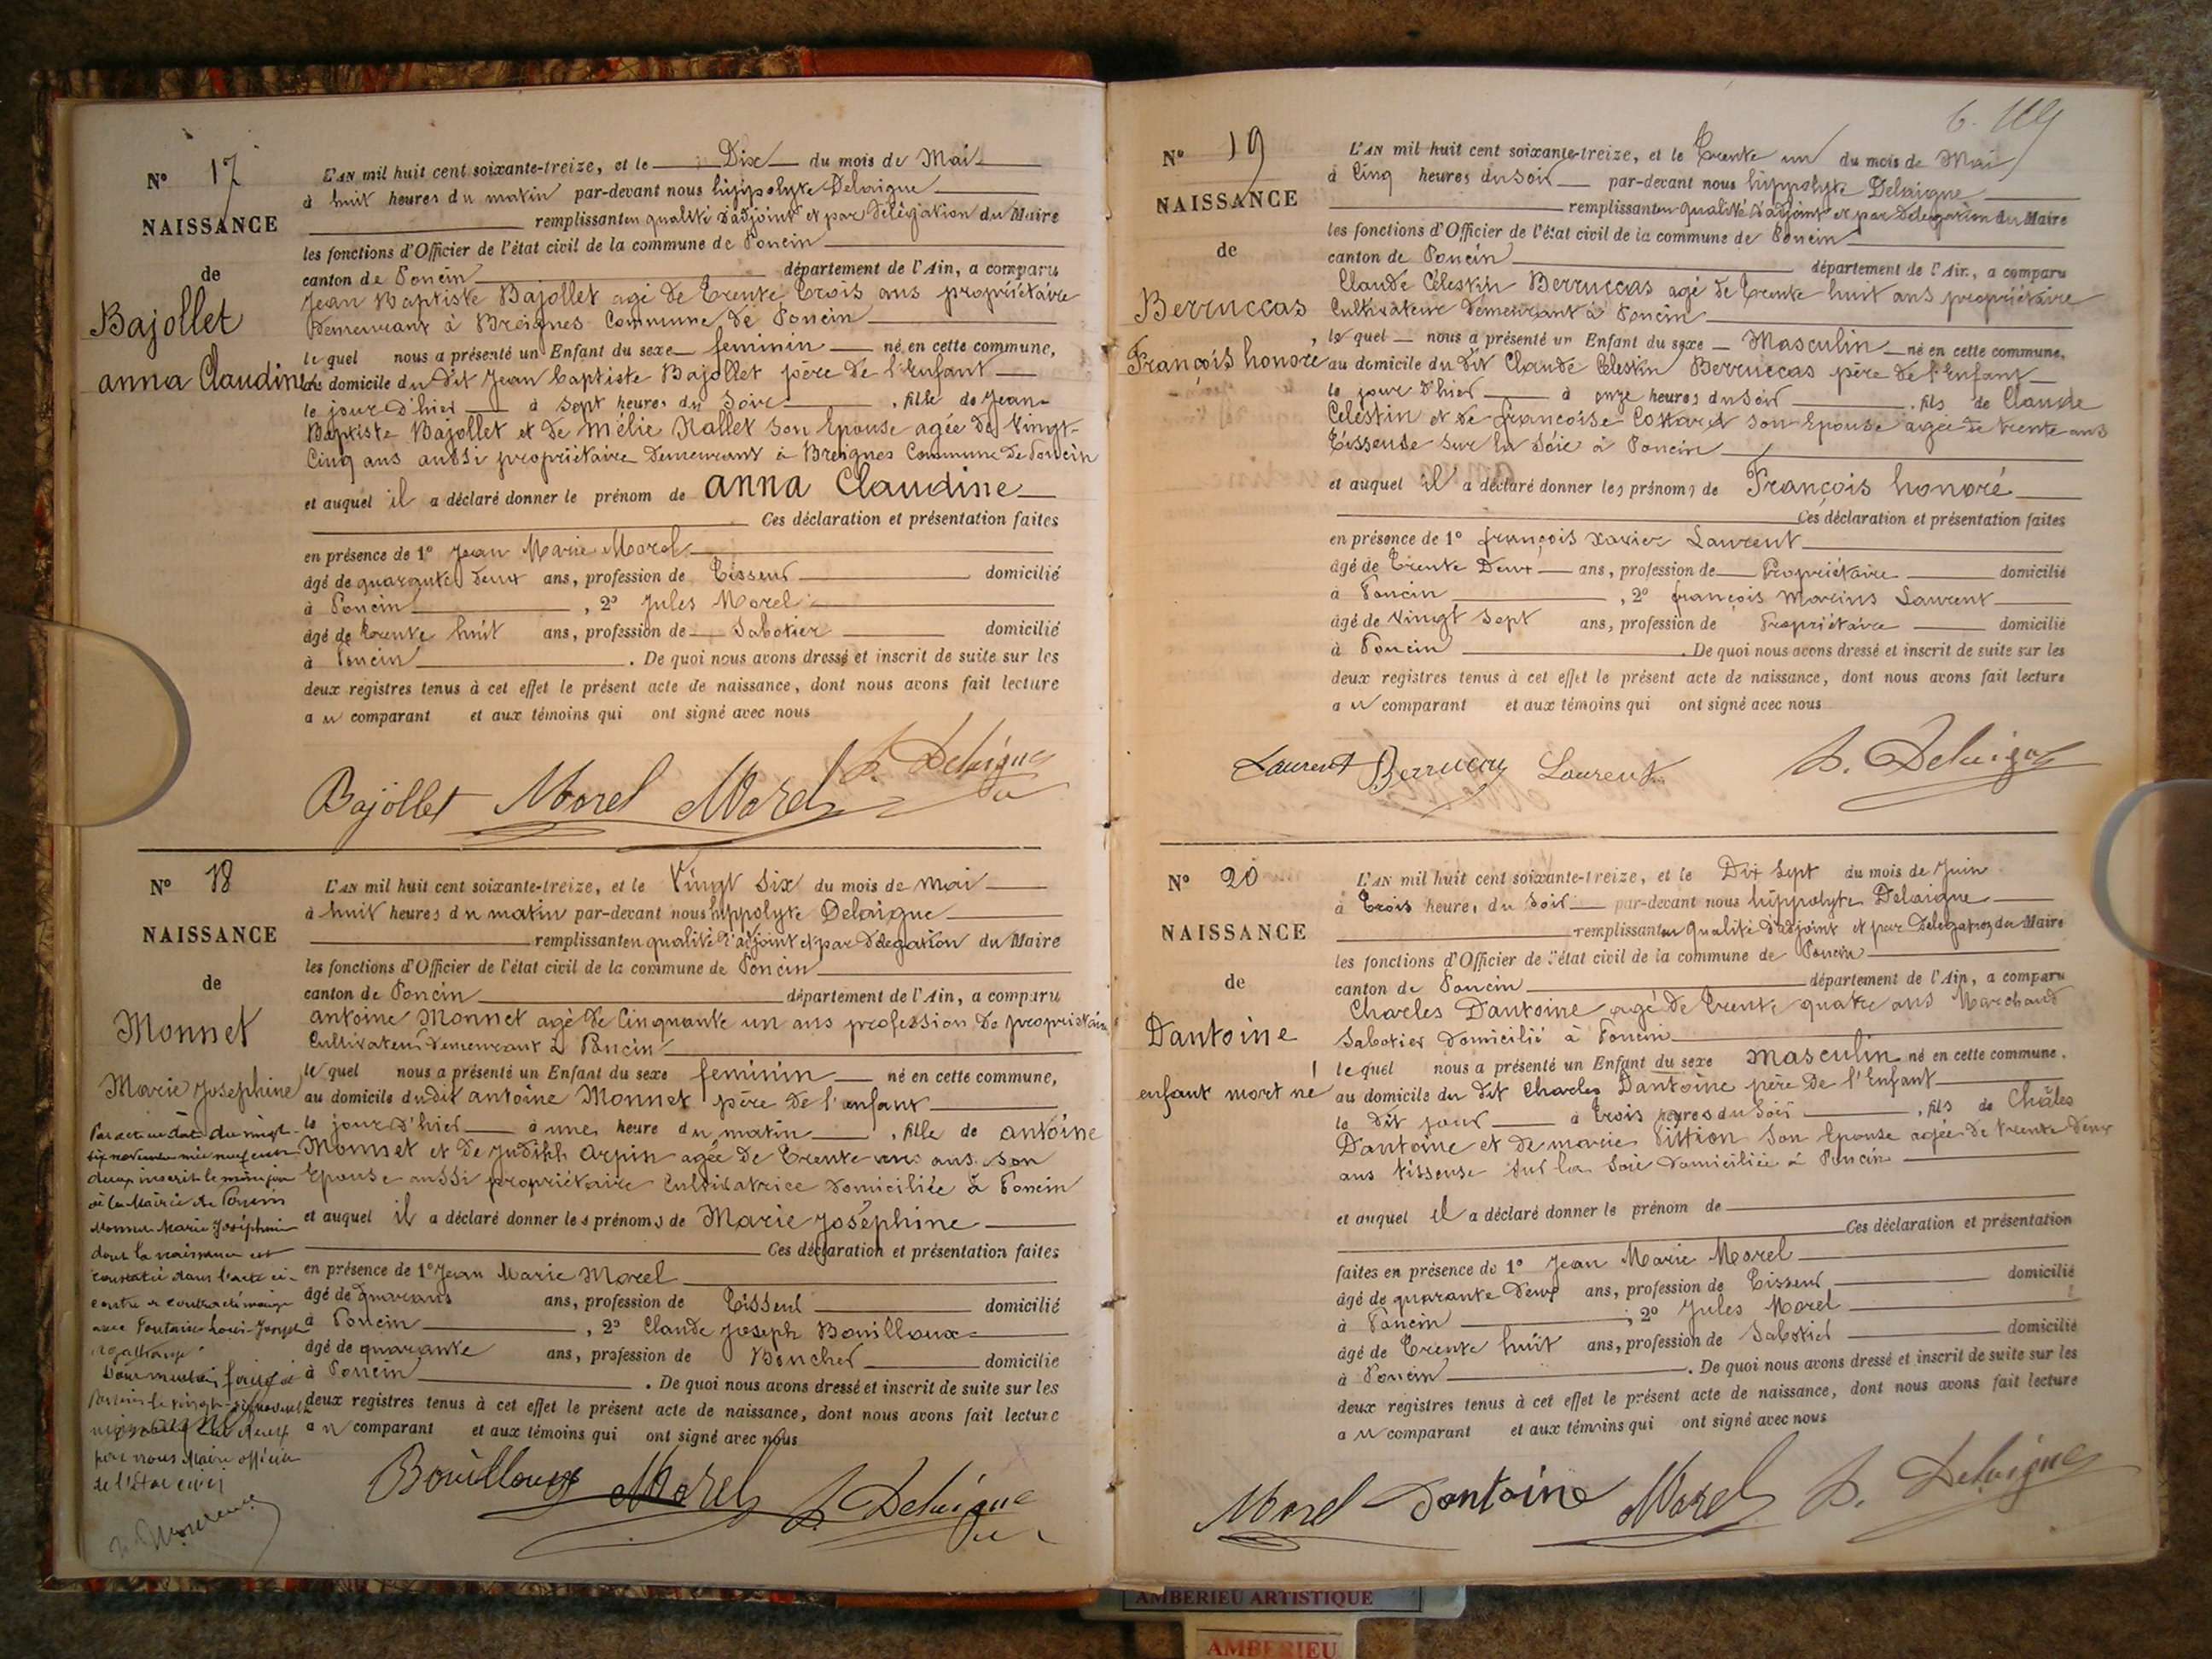 N° 17
NAISSANCE
de
Bajollet
anna Claudine
L'AN mil huit cent soixante-treize, et le Dix du mois de Mai
à huit heures du matin par-devant nous hippolyte Delaigue
remplissant en qualité d'adjoint et par délégation du Maire
les fonctions d'Officier de l'état civil de la commune de Poncin
canton de Poncin département de l'Ain, a comparu
Jean Baptiste Bajollet agé de Trente Trois ans propriétaire
Demeurant à Breignes Commune de Poncin
le quel nous a présenté un Enfant du sexe feminin né en cette commune,
au domicile du dit Jean baptiste Bajollet père de l'Enfant
le jour d'hier à sept heures du soir , fille de Jean
Baptiste Bajollet et de Mélie Rallet son Epouse agée de Vingt
Cinq ans aussi propriétaire Demeurant à Breignes Commune de Poncin
et auquel il a déclaré donner le prénom de anna Claudine
Ces déclaration et présentation faites
en présence de 1° Jean Marie Morel
âgé de quarante deux ans, profession de Tisseur domicilié
à Poncin , 2° Jules Morel
âgé de trente huit ans, profession de Sabotier domicilié
à Poncin . De quoi nous avons dressé et inscrit de suite sur les
deux registres tenus à cet effet le présent acte de naissance, dont nous avons fait lecture
au comparant et aux témoins qui ont signé avec nous
Bajollet Morel Morel h. Delaigue
N° 18
NAISSANCE
de
Monnet
Marie Josephine
L'AN mil huit cent soixante-treize, et le Vingt Six du mois de mai
à huit heures du matin par-devant nous hippolyte Delaigue
remplissant en qualité d'adjoint et par délégation du Maire
les fonctions d'Officier de l'état civil de la commune de Poncin
canton de Poncin département de l'Ain, a comparu
antoine Monnet agé de Cinquante un ans profession de propriétaire
Cultivateur Demeurant à Poncin
le quel nous a présenté un Enfant du sexe feminin né en cette commune,
au domicile du dit antoine Monnet père de l'enfant
le jour d'hier à une heure du matin , fille de antoine
Monnet et de Judith Arpin agée de Trente ans son
Epouse aussi propriétaire Cultivatrice domiciliée à Poncin
et auquel il a déclaré donner les prénoms de Marie Joséphine
Ces déclaration et présentation faites
en présence de 1° Jean Marie Morel
âgé de ans, profession de Tisseur domicilié
à Poncin , 2° Claude Joseph Bouilloux
âgé de quarante ans, profession de Boucher domicilié
à Poncin . De quoi nous avons dressé et inscrit de suite sur les
deux registres tenus à cet effet le présent acte de naissance, dont nous avons fait lecture
au comparant et aux témoins qui ont signé avec nous
Par acte en date du vingt
six novembre mil neuf cent
deux inscrit le même jour
à la Mairie de Poncin
Monnet Marie Joséphine
dont la naissance est
constatée dans l'acte ci-
contre a contracté mariage
avec Fontaine Louis Joseph
Dont mention faite à
Poncin le vingt-six novembre
mil neuf cent deux
par nous Maire officier
de l'Etat civil
Bouilloux Morel h. Delaigue
N° 19
NAISSANCE
de
Berruccas
François honoré
L'AN mil huit cent soixante-treize, et le Trente un du mois de Mai
à Cinq heures du soir par-devant nous hippolyte Delaigue
remplissant en qualité d'adjoint et par Délégation du Maire
les fonctions d'Officier de l'état civil de la commune de Poncin
canton de Poncin département de l'Ain, a comparu
Claude Célestin Berruccas agé de Trente huit ans propriétaire
Cultivateur Demeurant à Poncin
le quel nous a présenté un Enfant du sexe Masculin né en cette commune,
au domicile du dit Claude Célestin Berruccas père de l'Enfant
le jour d'hier à onze heures du soir , fils de Claude
Célestin et de françoise Cottaret son Epouse agée de trente ans
Tisseuse sur la Soie à Poncin
et auquel il a déclaré donner les prénoms de François honoré
Ces déclaration et présentation faites
en présence de 1° françois Xavier Laurent
âgé de Trente Deux ans, profession de Propriétaire domicilié
à Poncin , 2° françois Marius Laurent
âgé de Vingt Sept ans, profession de Propriétaire domicilié
à Poncin . De quoi nous avons dressé et inscrit de suite sur les
deux registres tenus à cet effet le présent acte de naissance, dont nous avons fait lecture
au comparant et aux témoins qui ont signé avec nous
Laurent Berruccas Laurent h. Delaigue
N° 20
NAISSANCE
de
Dantoine
enfant mort né
L'AN mil huit cent soixante-treize, et le Dix Sept du mois de Juin
à Trois heures du Soir par-devant nous hippolyte Delaigue
remplissant en qualité d'adjoint et par Délégation du Maire
les fonctions d'Officier de l'état civil de la commune de Poncin
canton de Poncin département de l'Ain, a comparu
Charles Dantoine agé de Trente quatre ans Marchand
Sabotier domicilié à Poncin
le quel nous a présenté un Enfant du sexe Masculin né en cette commune,
au domicile du dit Charles Dantoine père de l'Enfant
le dit jour à Trois heures du Soir , fils de Charles
Dantoine et de marie Pittion Son Epouse agée de trente Deux
ans tisseuse sur la Soie domiciliée à Poncin
et auquel il a déclaré donner le prénom de
Ces déclaration et présentation
faites en présence de 1° Jean Marie Morel
âgé de quarante Deux ans, profession de Tisseur domicilié
à Poncin , 2° Jules Morel
âgé de Trente huit ans, profession de Sabotier domicilié
à Poncin . De quoi nous avons dressé et inscrit de suite sur les
deux registres tenus à cet effet le présent acte de naissance, dont nous avons fait lecture
au comparant et aux témoins qui ont signé avec nous
Morel Dantoine Morel h. Delaigue
AMBERIEU ARTISTIQUE
AMBERIEU